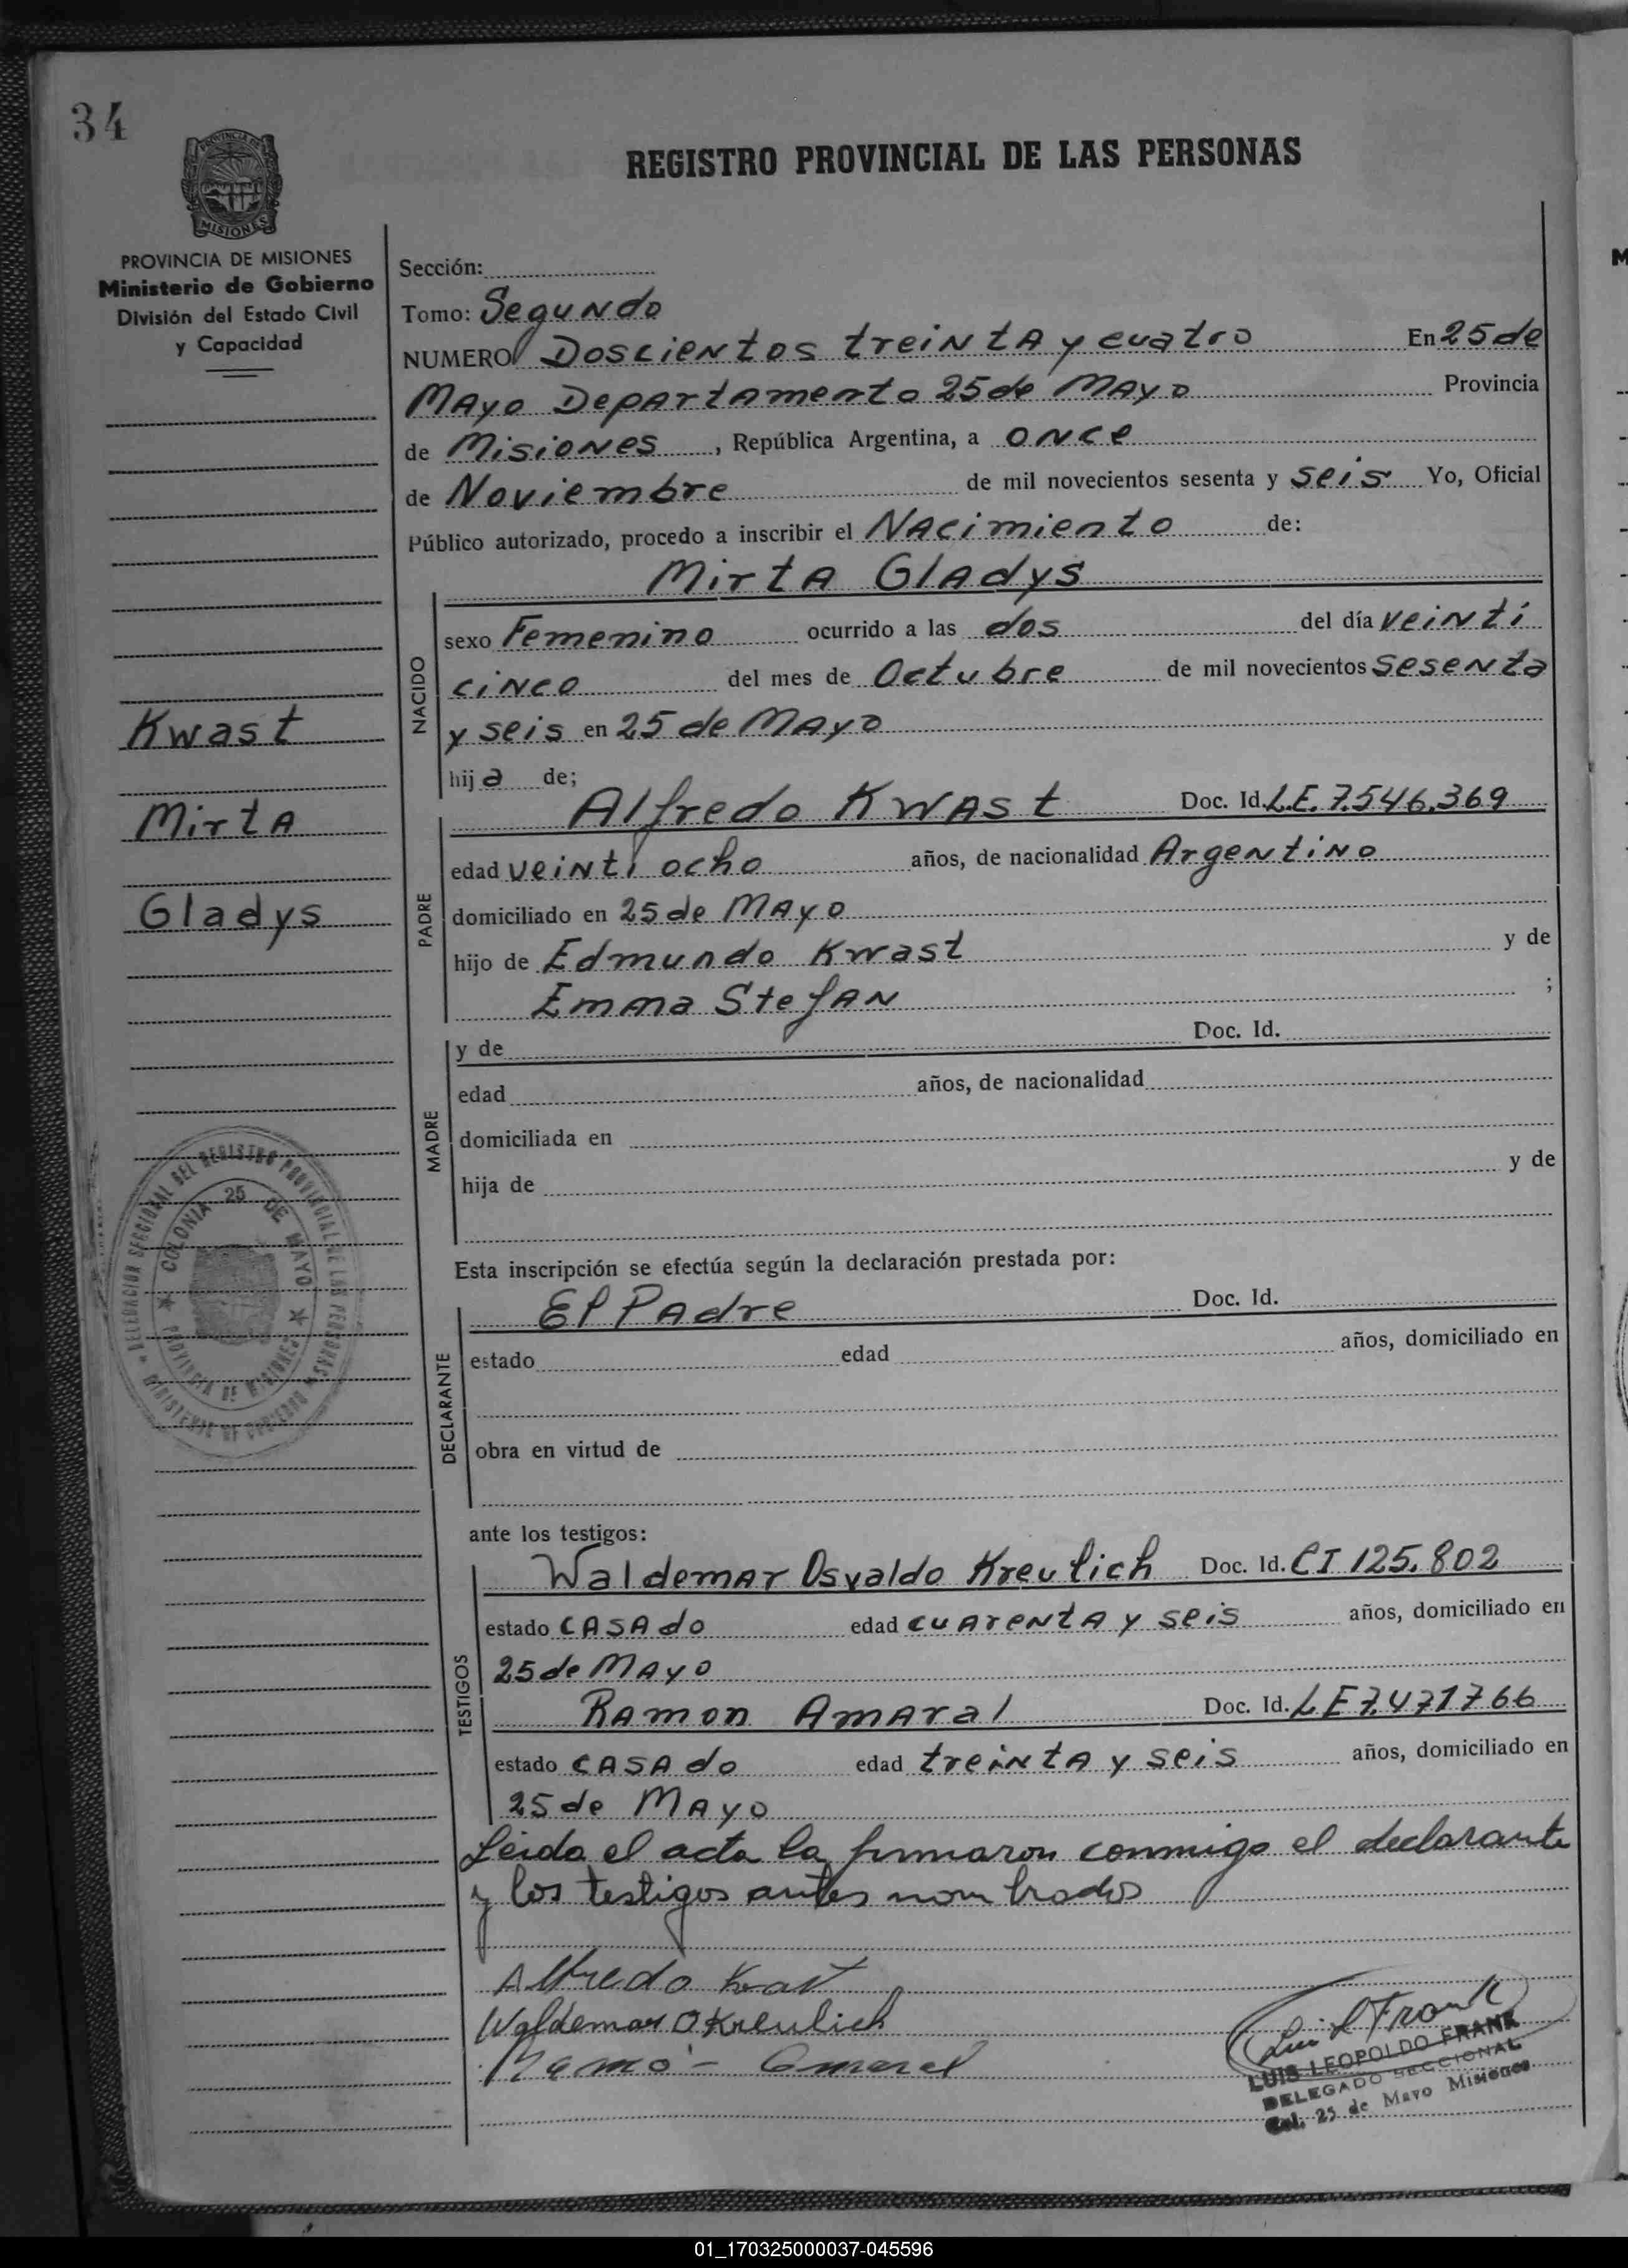 34
PROVINCIA DE
MISIONES
REGISTRO PROVINCIAL DE LAS PERSONAS
PROVINCIA DE MISIONES
Ministerio de Gobierno
División del Estado Civil
y Capacidad
Kwast
Mirta
Gladys
DELEGACION SECCIONAL DEL REGISTRO PROVINCIAL DE LAS PERSONAS
MINISTERIO DE GOBIERNO
COLONIA 25 DE MAYO
PROVINCIA DE MISIONES
Sección:
Tomo: Segundo
NUMERO Doscientos treinta y cuatro En 25 de
Mayo Departamento 25 de Mayo Provincia
de Misiones, República Argentina, a once
de Noviembre de mil novecientos sesenta y seis Yo, Oficial
Público autorizado, procedo a inscribir el Nacimiento de:
Mirta Gladys
NACIDO
sexo Femenino ocurrido a las dos del día veinti
cinco del mes de Octubre de mil novecientos sesenta
y seis en 25 de Mayo
hija de;
PADRE
Alfredo Kwast Doc. Id. L.E. 7.546.369
edad veinti ocho años, de nacionalidad Argentino
domiciliado en 25 de Mayo
hijo de Edmundo Kwast y de
Emma Stefan ;
MADRE
y de Doc. Id.
edad años, de nacionalidad
domiciliada en
hija de y de
Esta inscripción se efectúa según la declaración prestada por:
DECLARANTE
El Padre Doc. Id.
estado edad años, domiciliado en
obra en virtud de
ante los testigos:
TESTIGOS
Waldemar Osvaldo Kreulich Doc. Id. CI 125.802
estado casado edad cuarenta y seis años, domiciliado en
25 de Mayo
Ramon Amaral Doc. Id. LE 7.471766
estado casado edad treinta y seis años, domiciliado en
25 de Mayo
Leida el acta la firmaron conmigo el declarante
y los testigos antes nombrados
Alfredo Kwast
Waldemar O Kreulich
Ramo- Amaral
Luis L Frank
LUIS LEOPOLDO FRANK
DELEGADO SECCIONAL
Col. 25 de Mayo Misiones
01_170325000037-045596